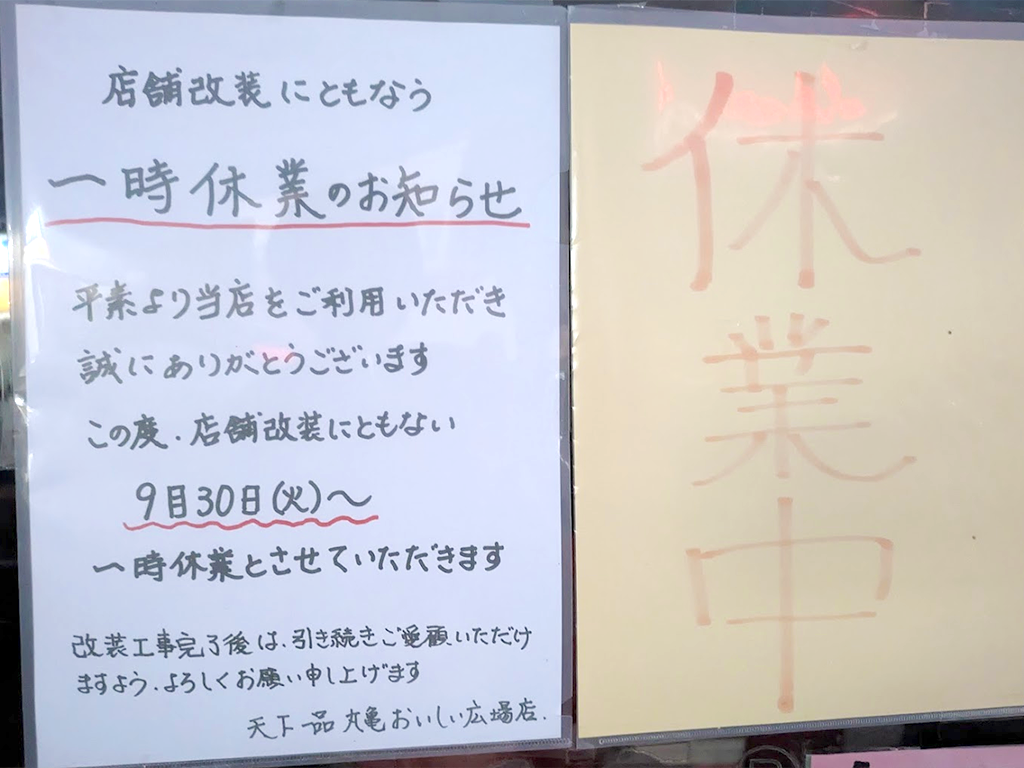 店舗改装にともなう
一時休業のお知らせ
平素より当店をご利用いただき
誠にありがとうございます
この度、店舗改装にともない
9月30日(火)〜
一時休業とさせていただきます
改装工事完了後は、引き続きご愛顧いただけ
ますよう、よろしくお願い申し上げます
天下一品 丸亀おいしい広場店.
休業中